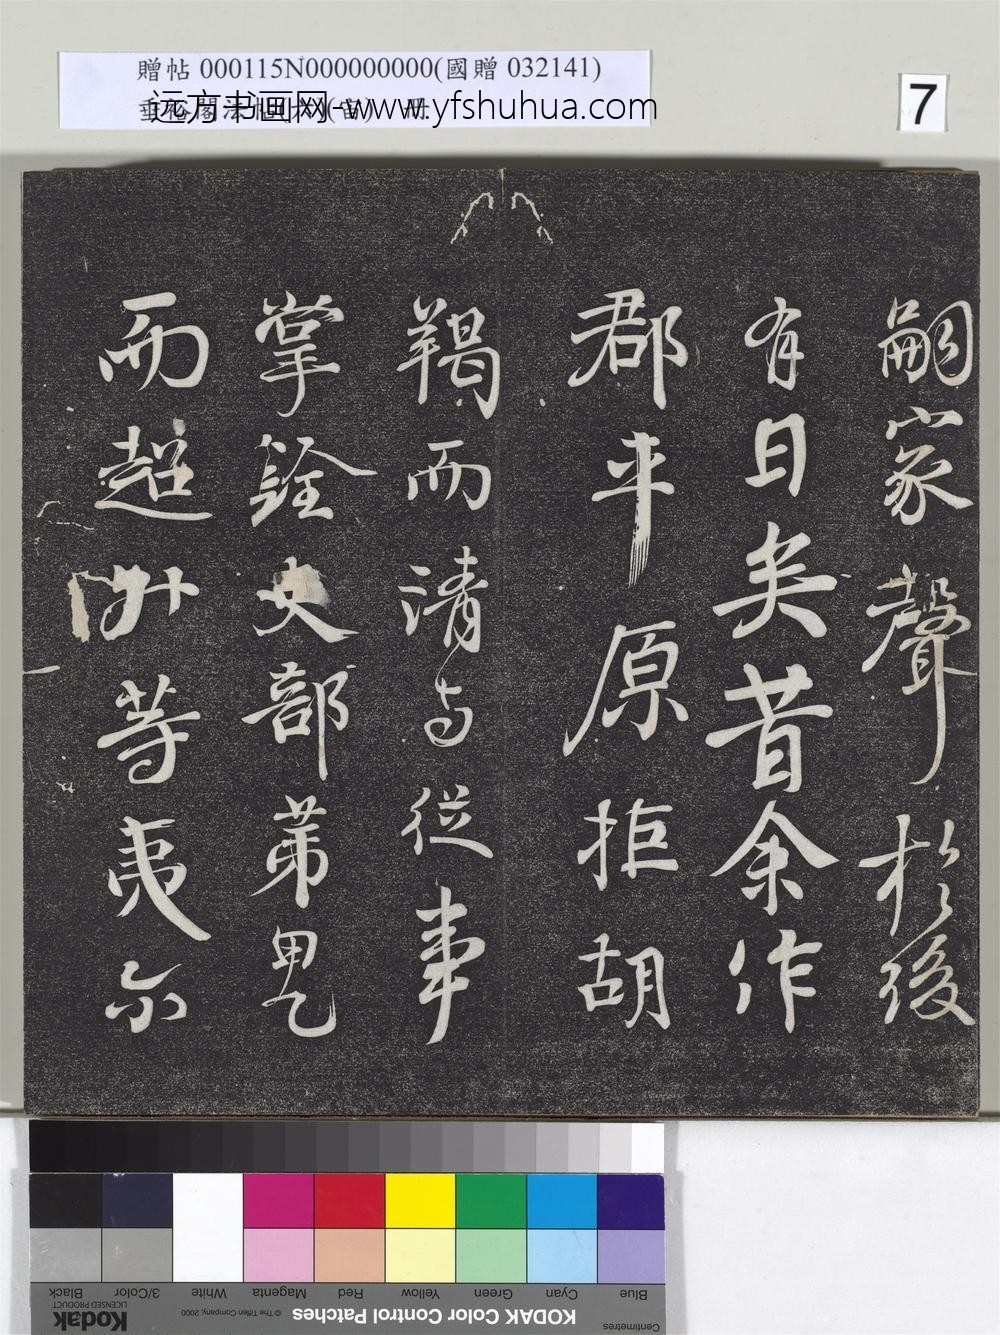 贈帖 000115N000000000(國贈 032141)
远方书画网-www.yfshuhua.com
7
嗣家聲於後
有日矣昔余作
郡平原拒胡
羯而清与從事
掌銓吏部苐甲乙
而超升等夷尒
Blue Cyan Green Yellow Red Magenta White 3/Color Black
Centimetres
KODAK Color Control Patches © The Tiffen Company, 2000
Kodak
LICENSED PRODUCT